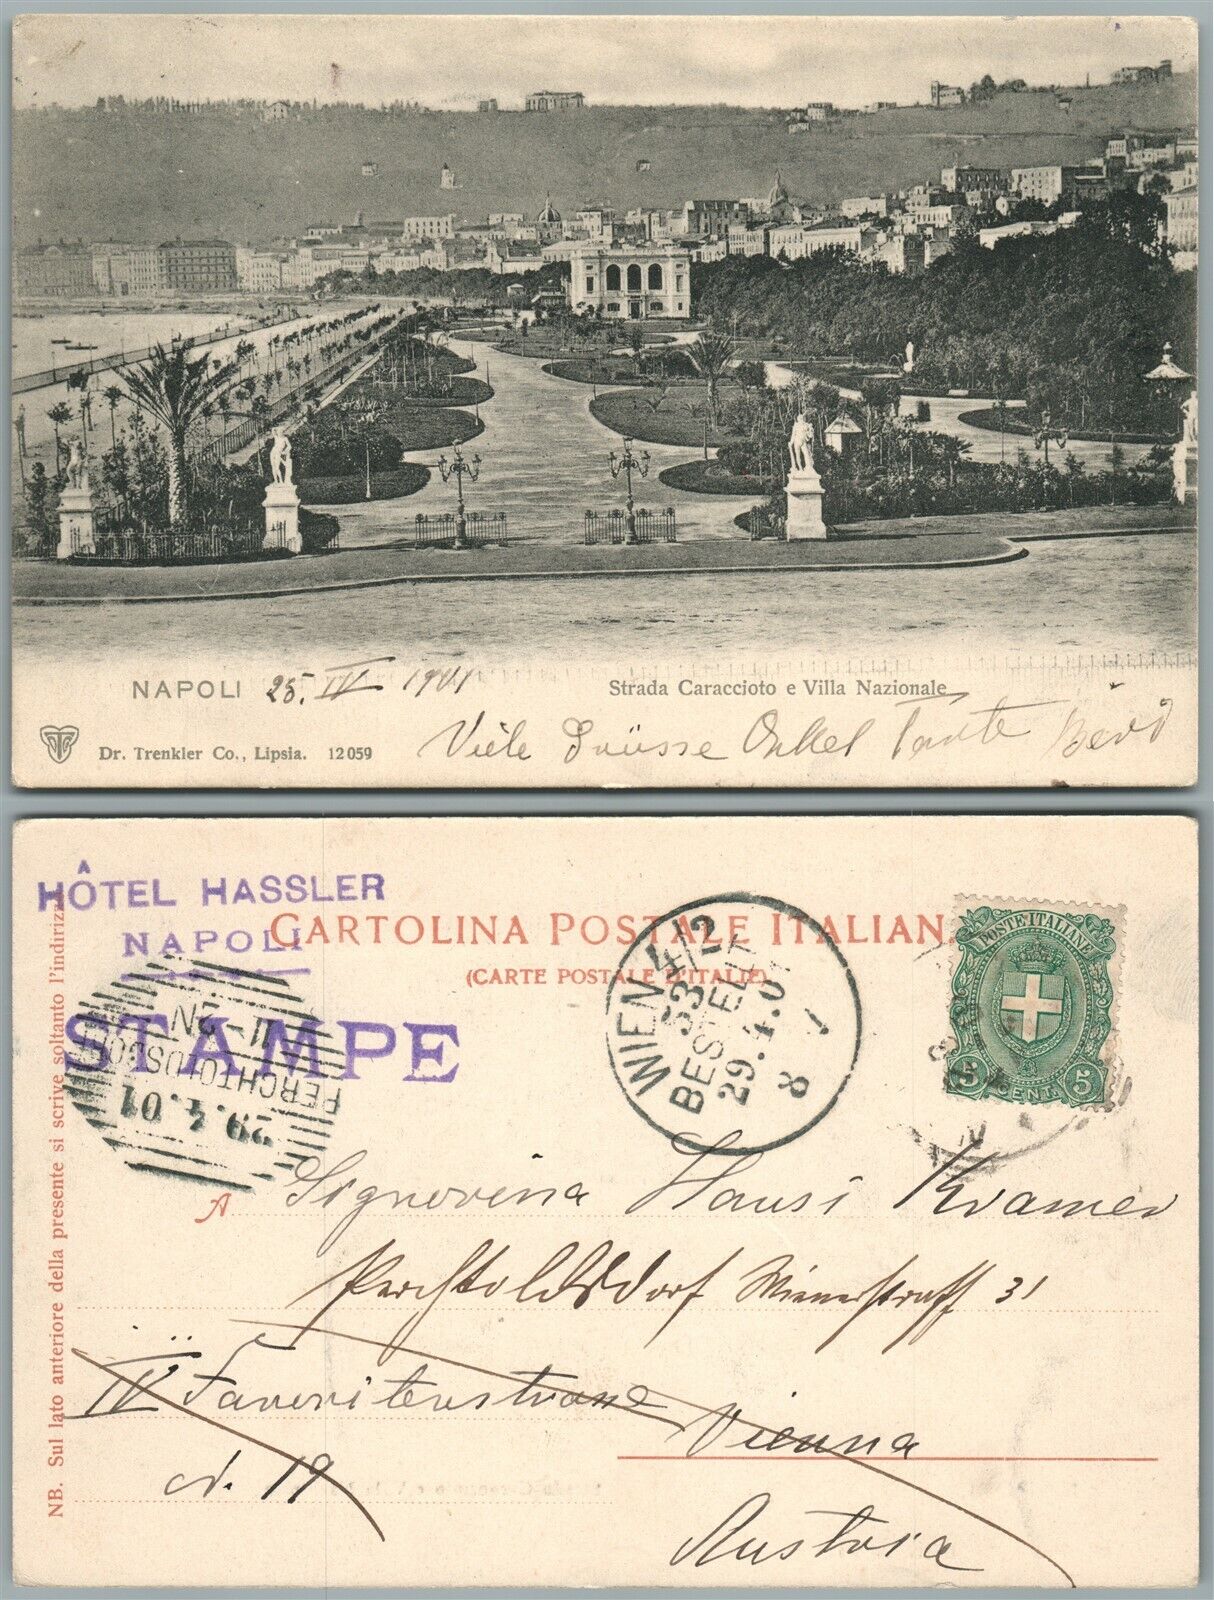 NAPOLI 25. IV 1901
Strada Caracciolo e Villa Nazionale
Dr. Trenkler Co., Lipsia. 12059
Viele Grüsse Onkel Tante
HÔTEL HASSLER
NAPOLI
STAMPE
CARTOLINA POSTALE ITALIAN
(CARTE POSTALE D'ITALIE)
WIEN 4/12
53
BESTELLT
29.4.01
8 V
POSTE ITALIANE
5 CENT. 5
PERCHTOLDSDORF
29.4.01
11-2N
NB. Sul lato anteriore della presente si scrive soltanto l'indirizz
A Signorina Hansi Kramer
Perchtoldsdorf Wienerstrasse 31
IV Favoritenstrasse
Vienna
N. 19
Austria